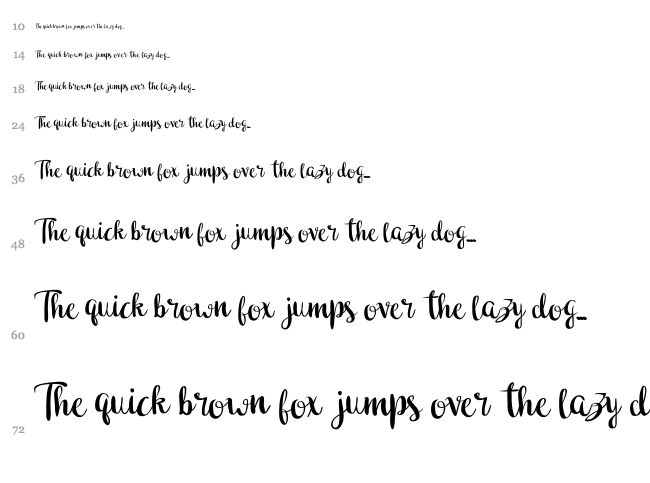 10 The quick brown fox jumps over the lazy dog...
14 The quick brown fox jumps over the lazy dog...
18 The quick brown fox jumps over the lazy dog...
24 The quick brown fox jumps over the lazy dog...
36 The quick brown fox jumps over the lazy dog...
48 The quick brown fox jumps over the lazy dog...
60 The quick brown fox jumps over the lazy dog...
72 The quick brown fox jumps over the lazy d